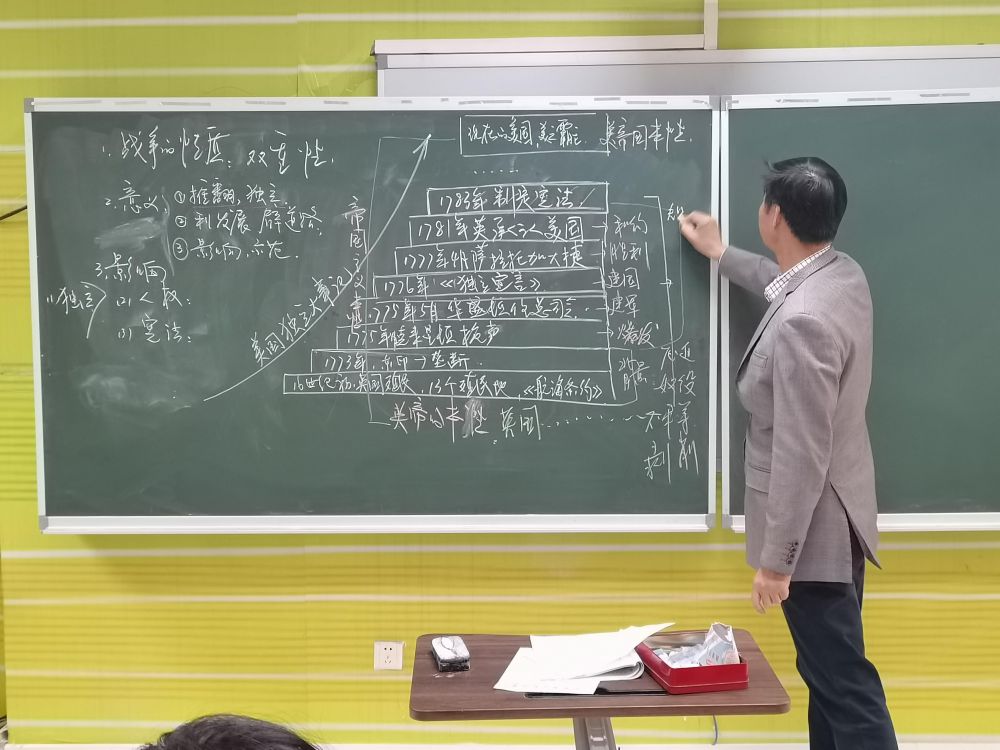 1. 战争的性质：双重性.
2. 意义：①推翻，独立.
②利发展 辟道路.
③影响，示范.
3. 影响
(1)独立
(2)人权：
(3)宪法：
美国独立大
帝国主义
现在的美国，美之霸主.
美帝国本性.
......
1783年制定宪法.
1781年英承认美国
1777年 萨拉托加大捷
1776年《独立宣言》
1775年5月华盛顿任总司令.
1775年 枪声
1773年. 垄断.
英国殖民，13个殖民地，《航海条约》
英帝的本性. 英国......
和约
胜利
建国
建军
爆发
奴役
不平等
剥削